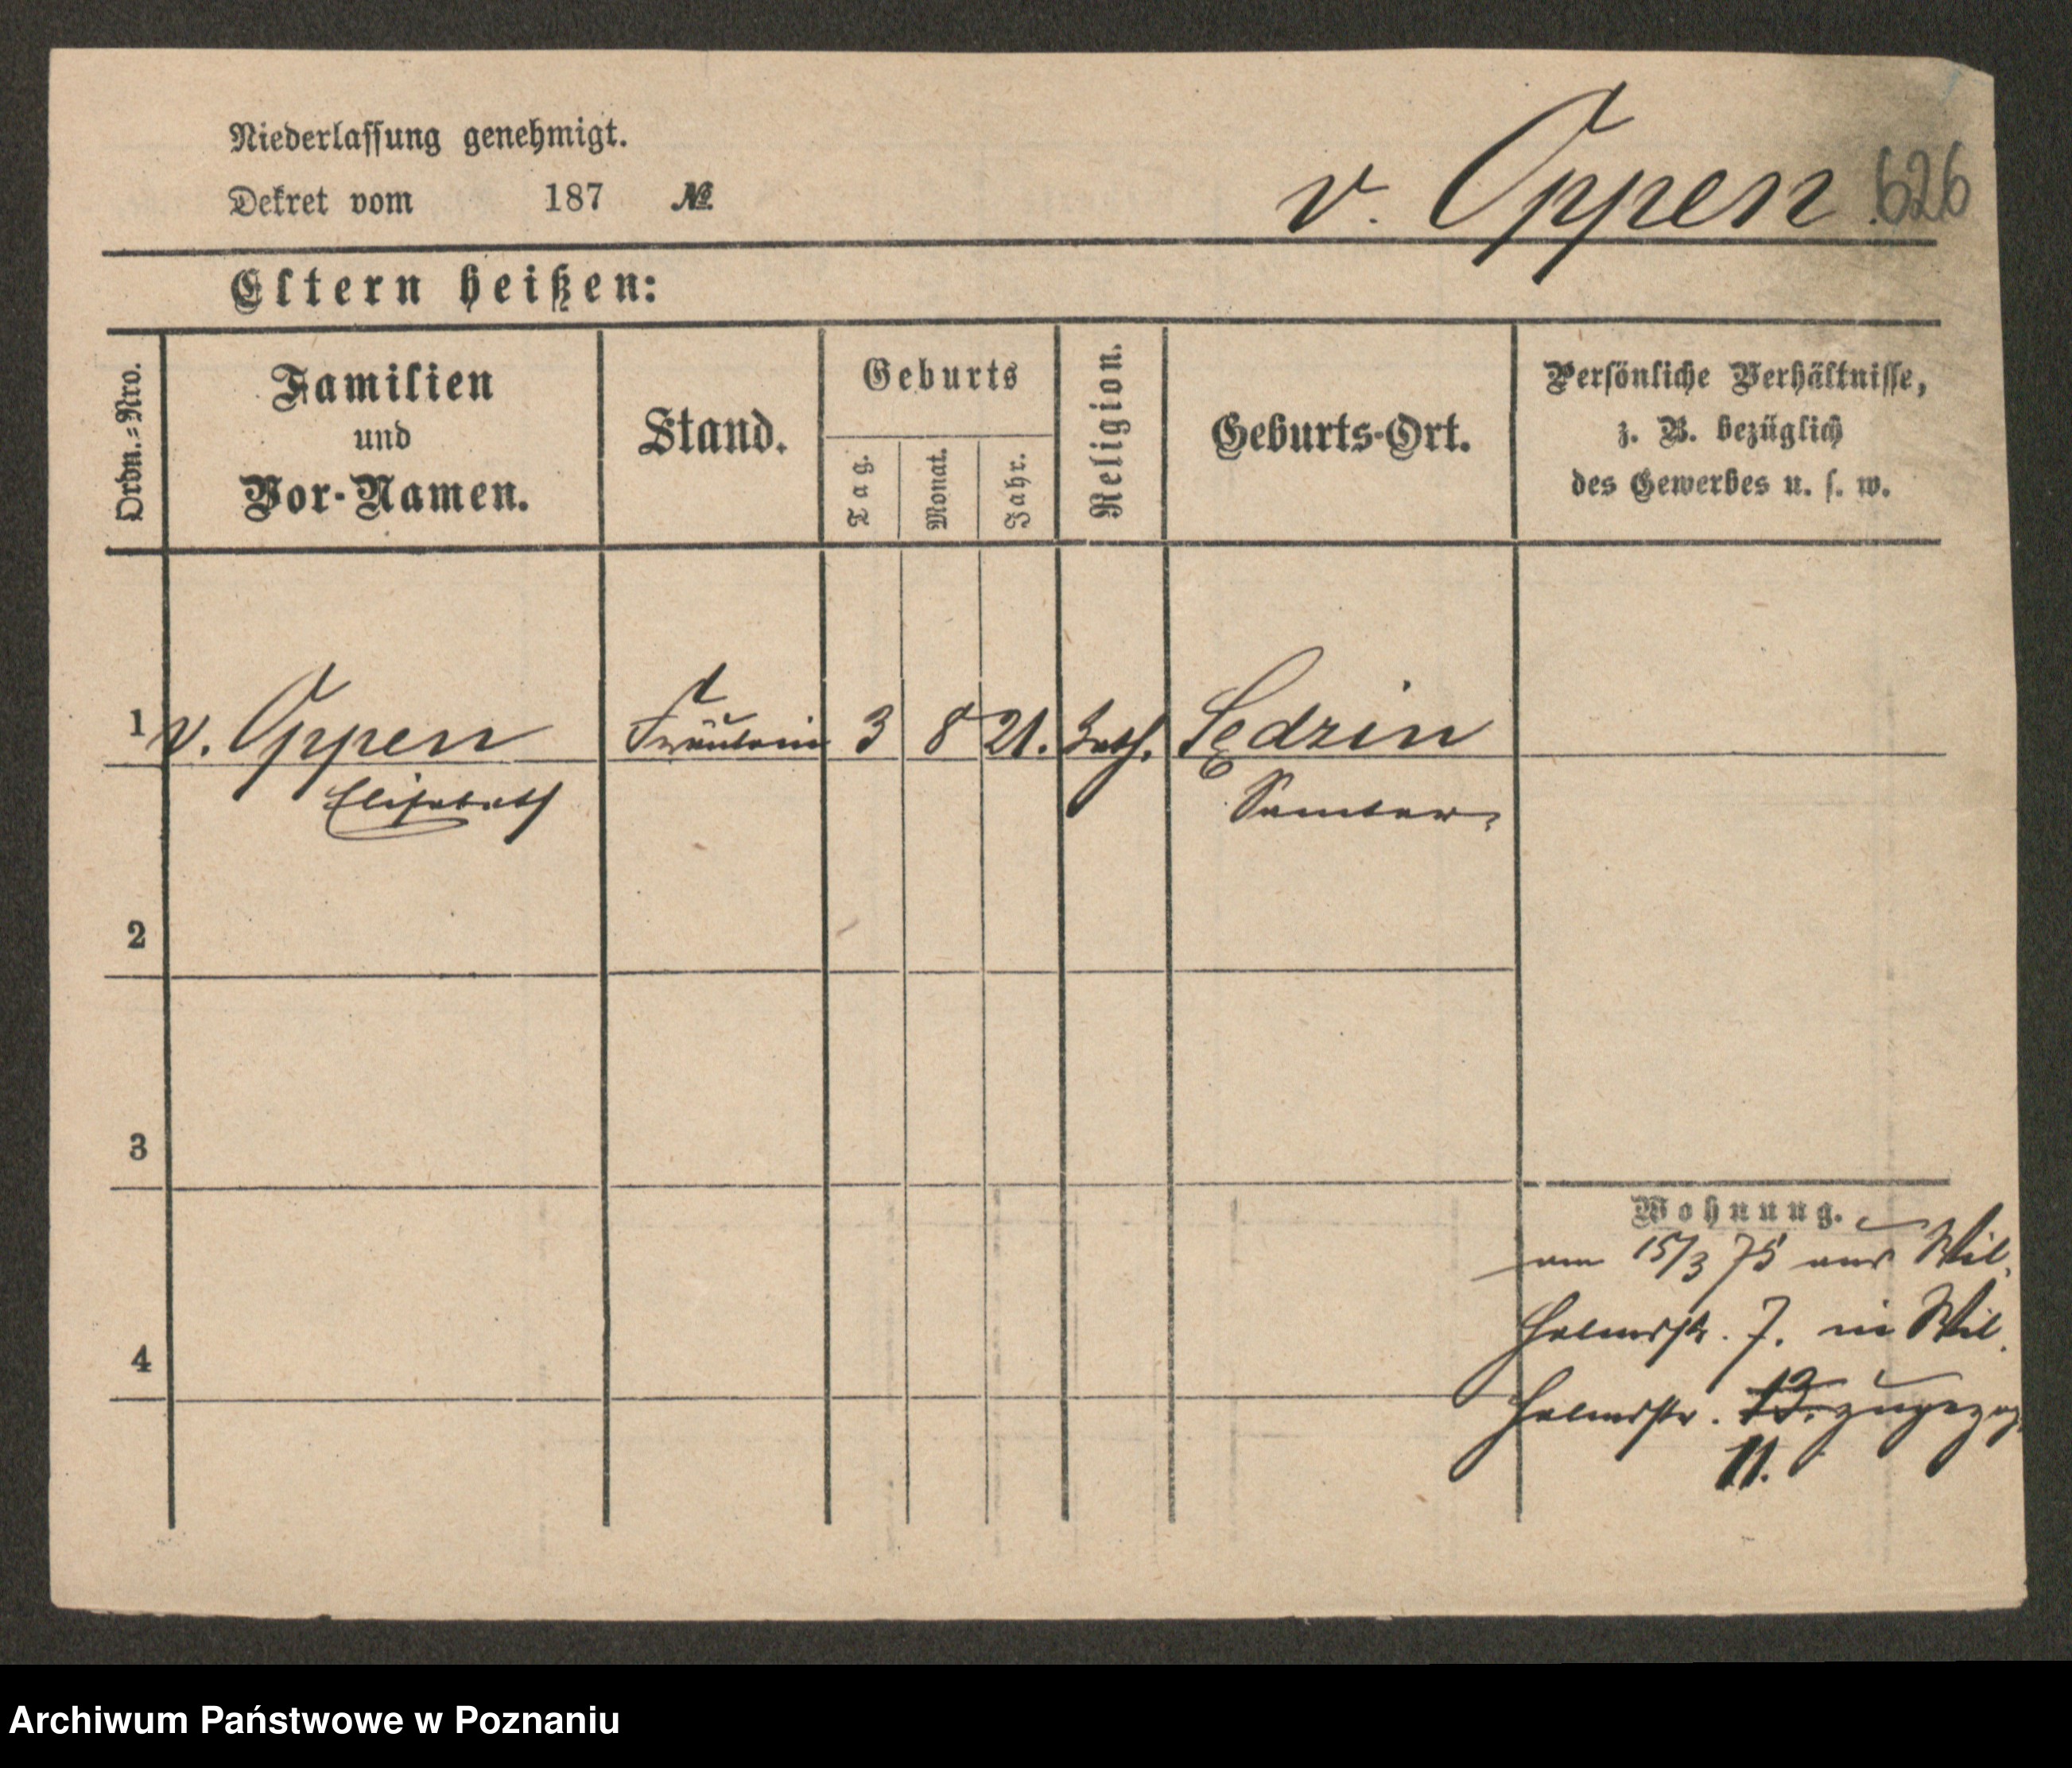 Niederlassung genehmigt.
Dekret vom 187 №
v. Oppen 626
Eltern heißen:
Ordn.=Nro.
Familien
und
Vor-Namen.
Stand.
Geburts
Tag.
Monat.
Jahr.
Religion.
Geburts-Ort.
Persönliche Verhältnisse,
z. B. bezüglich
des Gewerbes u. s. w.
1 v. Oppen Fräulein 3 8 21. kath. Sędzin
Elisabeth Samter
2
3
Wohnung.
am 15/3 75 aus Wil,
helmsstr. 7. in Wil,
4
helmsstr. 13. zugezog.
11.
Archiwum Państwowe w Poznaniu